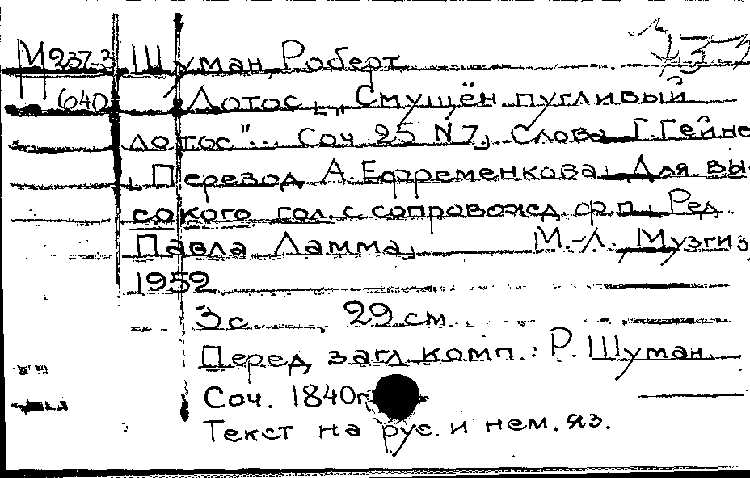 М237-3 Шуман, Роберт
640 Лотос „Смущён пугливый
лотос"... Соч. 25 N 7. Слова Г. Гейне
Перевод А. Ефременкова. Для вы-
сокого гол. с сопровожд. ф.п. Ред.
Павла Ламма. М.-Л., Музгиз,
1959
3 с. 29 см.
Перед загл. комп.: Р. Шуман
Соч. 1840г.
Текст на рус. и нем. яз.